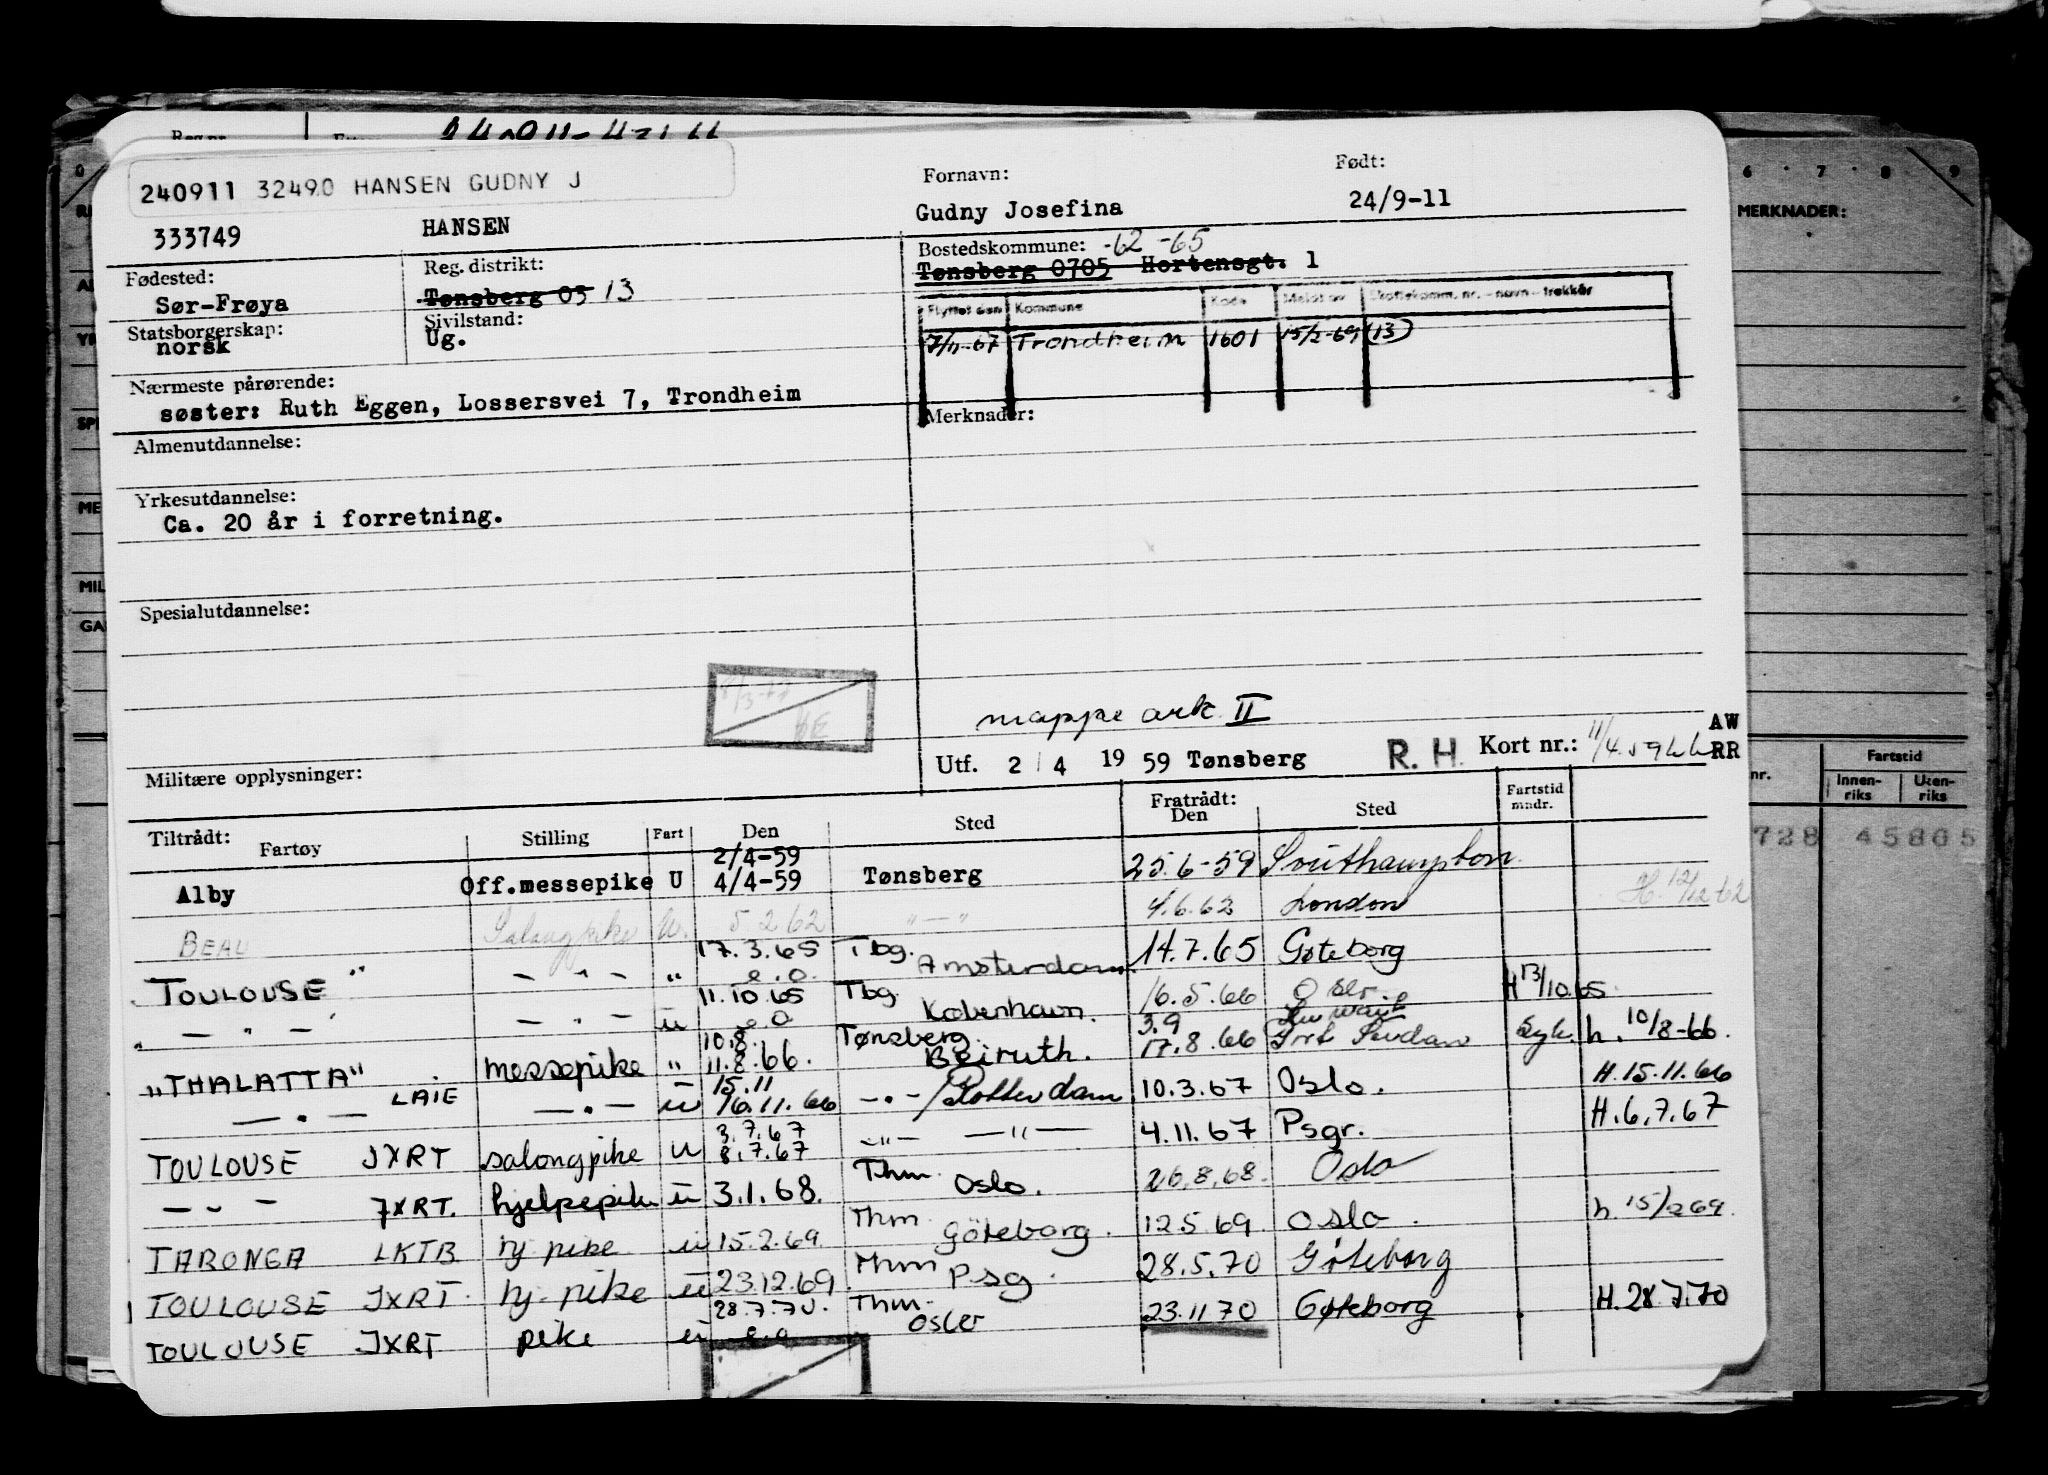 240911 32490 HANSEN GUDNY J
333749 HANSEN
Fornavn: Født:
Gudny Josefina 24/9-11
Fødested: Reg. distrikt: Bostedskommune: -62 -65
Sør-Frøya Tønsberg 03 13 Tønsberg 0705 Hortensgt. 1
Statsborgerskap: Sivilstand:
norsk Ug.
Flyttet den Kommune Kode Meldt av Skattekomm. nr. - navn - trekkår
7/11-67 Trondheim 1601 15/2-69 (13)
Nærmeste pårørende:
søster: Ruth Eggen, Lossersvei 7, Trondheim
Merknader:
Almenutdannelse:
Yrkesutdannelse:
Ca. 20 år i forretning.
Spesialutdannelse:
mappe ark II
Militære opplysninger:
Utf. 2/4 1959 Tønsberg R. H. Kort nr.: 11/4.59 AW RR
Tiltrådt: Fratrådt:
Fartøy Stilling Fart Den Sted Den Sted Fartstid mndr.
Alby Off.messepike U 2/4-59 4/4-59 Tønsberg 25.6-59 Southampton
BEAU Salongpike U. 5.2.62 " — " 4.6.62 London H. 12/12 62
"TOULOUSE" — " — " 17.3.65 e.o. Tbg. Amsterdam 14.7.65 Gøteborg
" — " — " — " — ü 11.10.65 e.o Tbg København. 16.5.66 Oslo H 13/10.65
"THALATTA" messepike " 10.8. 11.8.66. Tønsberg Beiruth. 3.9 17.8.66 Port Sudan Syk. h. 10/8-66.
— " — LAIE — " — ü 15.11 16.11.66 — " — / Rotterdam 10.3.67 Oslo. H.15.11.66
TOULOUSE JXRT salongpike u 3.7.67 8.7.67 — " — — " — 4.11.67 Psgr. H.6.7.67
— " — JXRT. hjelpepike ü 3.1.68. Thm. Oslo. 26.8.68. Oslo
TARONGA LKTB hj. pike ü 15.2.69 Thm Göteborg. 12.5.69 Oslo. h. 15/2 69.
TOULOUSE JXRT. hj. pike ü 23.12.69. Thm Psg. 28.5.70 Göteborg
TOULOUSE JXRT pike ü 28.7.70. e.o Thm. Oslo 23.11 70 Gøteborg H.28.7.70
6 7 8 9
MERKNADER:
nr. Fartstid
Innen-riks Uten-riks
728 45805